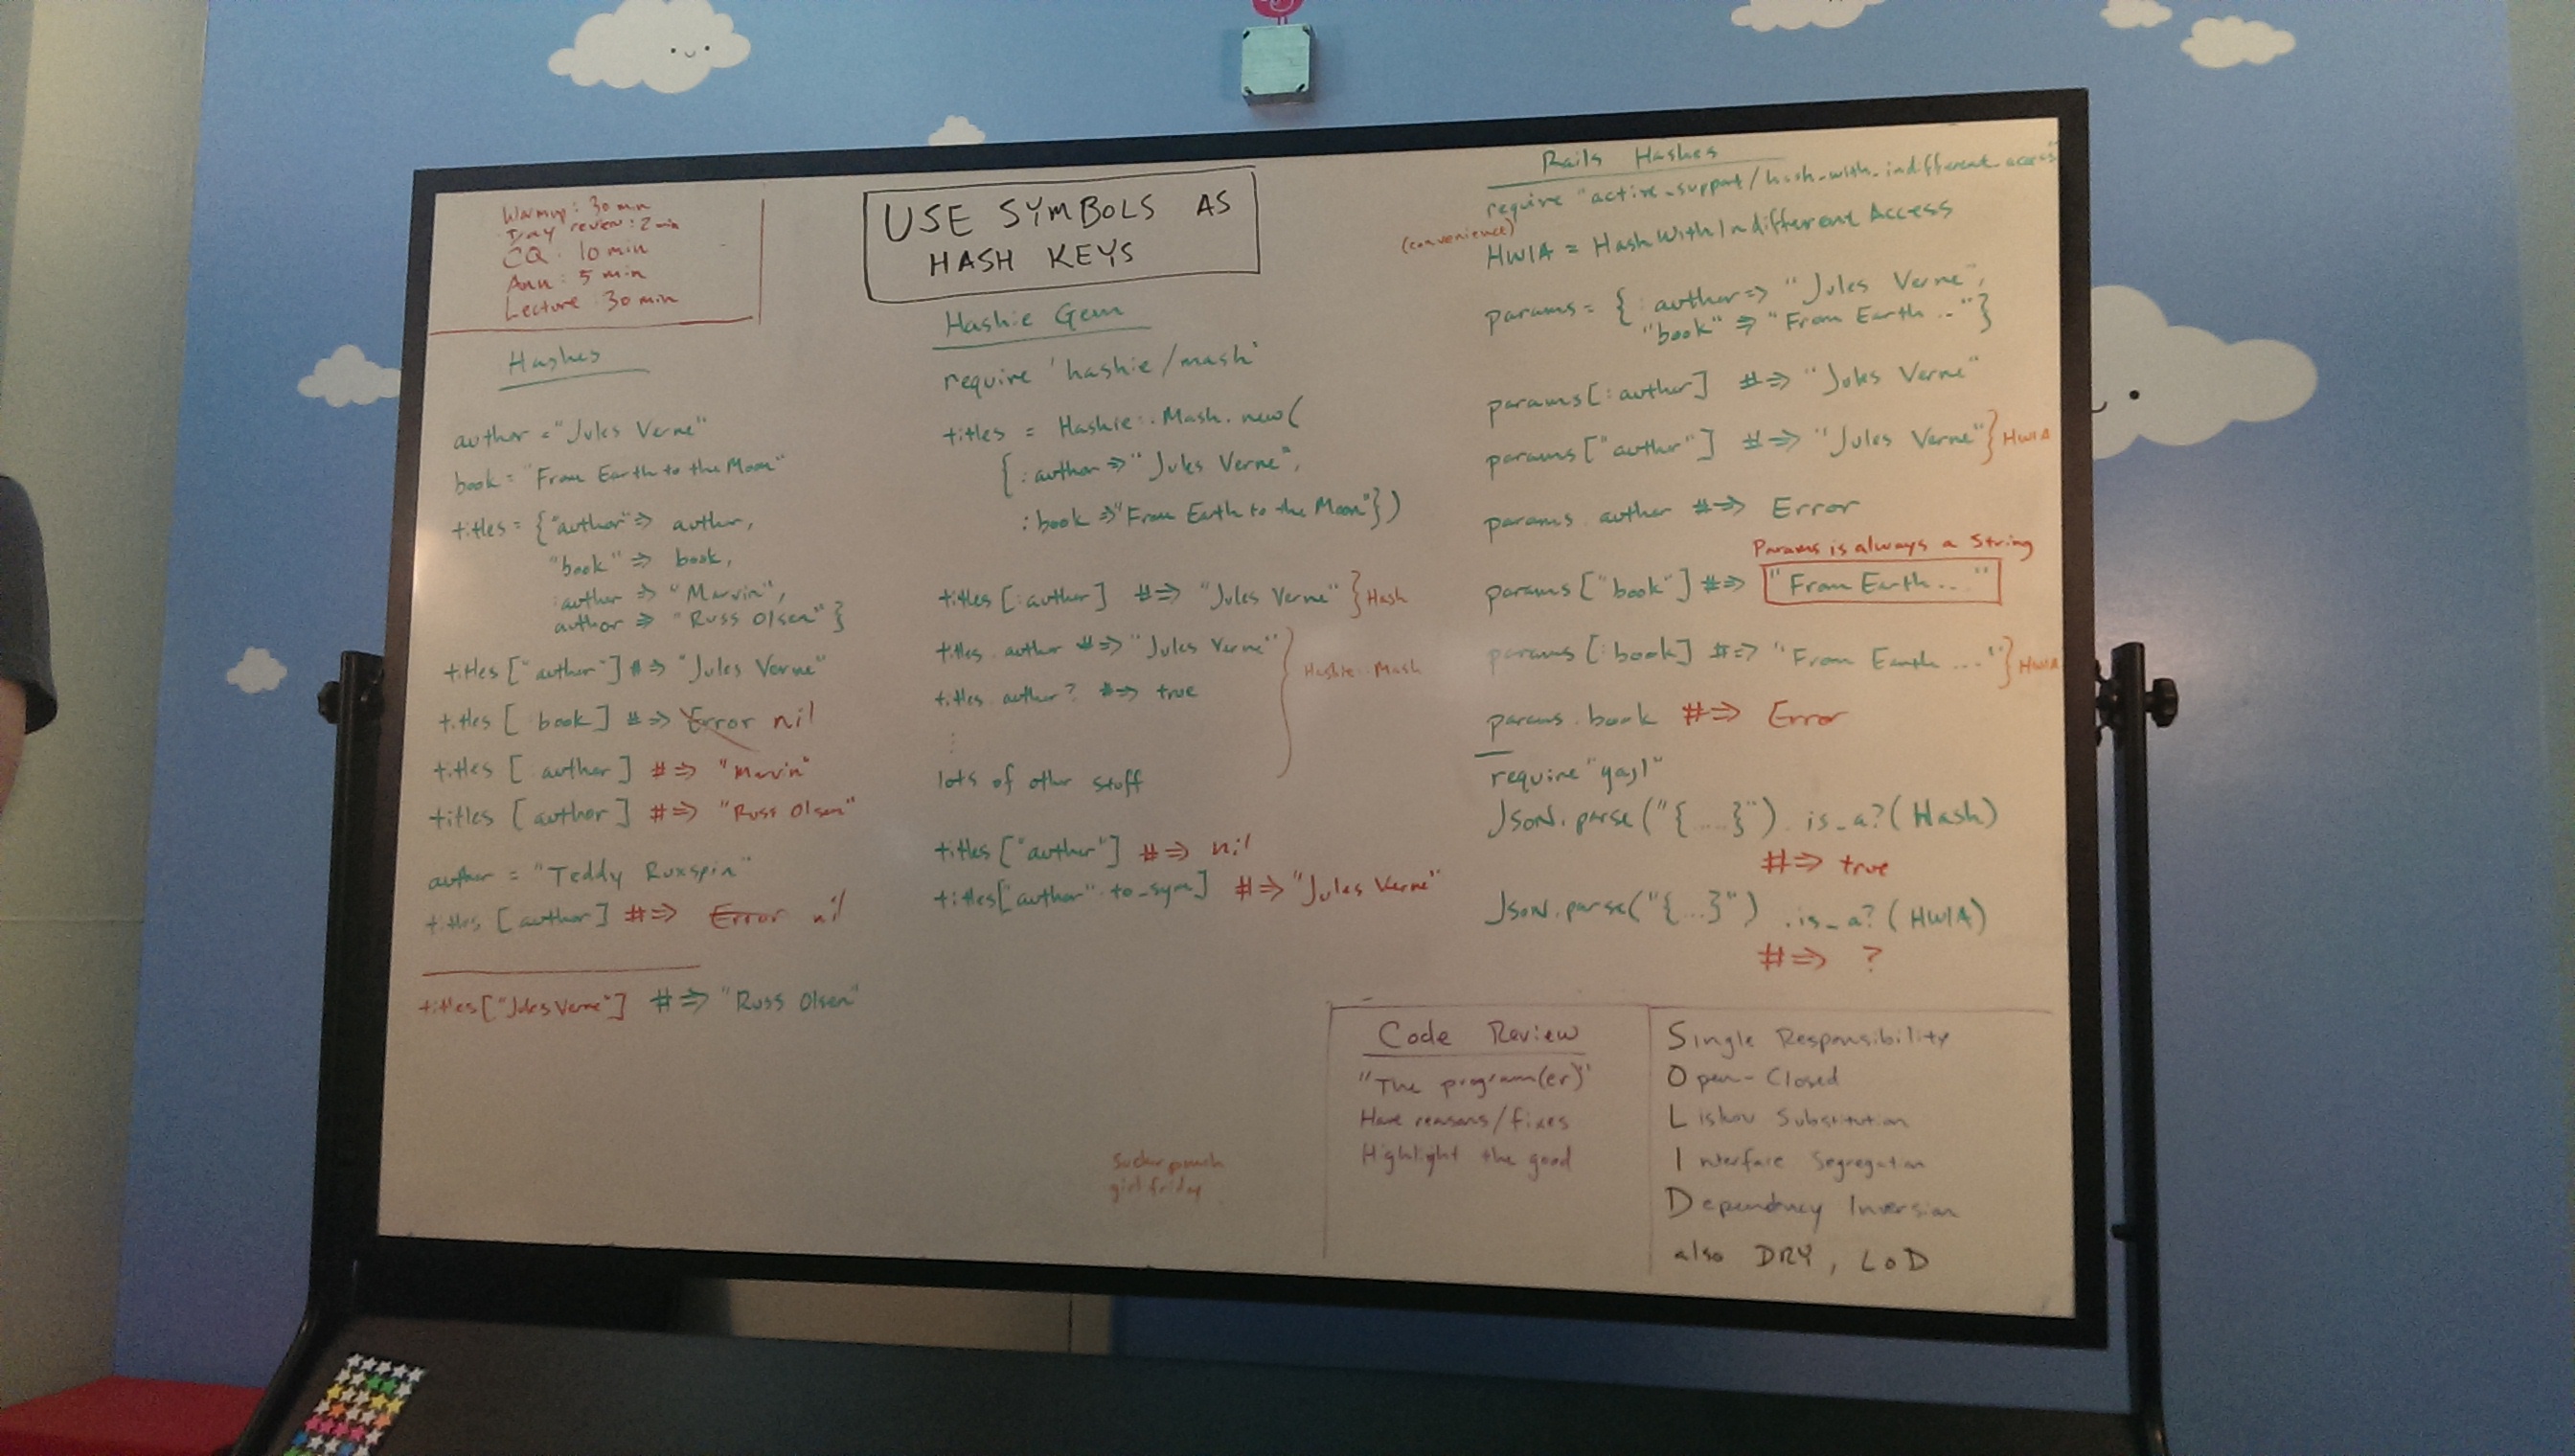 Warmup: 30 min
Day review: 2 min
CQ: 10 min
Ann: 5 min
Lecture: 30 min
USE SYMBOLS AS
HASH KEYS
Hashes
author = "Jules Verne"
book = "From Earth to the Moon"
titles = {"author" => author,
"book" => book,
:author => "Marvin",
author => "Russ Olsen"}
titles["author"] #=> "Jules Verne"
titles[:book] #=> Error nil
titles[:author] #=> "Marvin"
titles[author] #=> "Russ Olsen"
author = "Teddy Ruxspin"
titles[author] #=> Error nil
titles["Jules Verne"] #=> "Russ Olsen"
Hashie Gem
require 'hashie/mash'
titles = Hashie::Mash.new(
{:author => "Jules Verne",
:book => "From Earth to the Moon"})
titles[:author] #=> "Jules Verne" } Hash
titles.author #=> "Jules Verne"
titles.author? #=> true
Hashie::Mash
lots of other stuff
titles["author"] #=> nil
titles["author".to_sym] #=> "Jules Verne"
Sucker punch
girl friday
Rails Hashes
require "active_support/hash_with_indifferent_access"
(convenience)
HWIA = HashWithIndifferentAccess
params = {:author => "Jules Verne",
"book" => "From Earth .."}
params[:author] #=> "Jules Verne"
params["author"] #=> "Jules Verne" } HWIA
params.author #=> Error
Params is always a String
params["book"] #=> "From Earth ..."
params[:book] #=> "From Earth ..." } HWIA
params.book #=> Error
require "yajl"
JSON.parse("{....}").is_a?(Hash)
#=> true
JSON.parse("{...}").is_a?(HWIA)
#=> ?
Code Review
"The program(er)"
Have reasons/fixes
Highlight the good
Single Responsibility
Open-Closed
Liskov Substitution
Interface Segregation
Dependency Inversion
also DRY, LoD